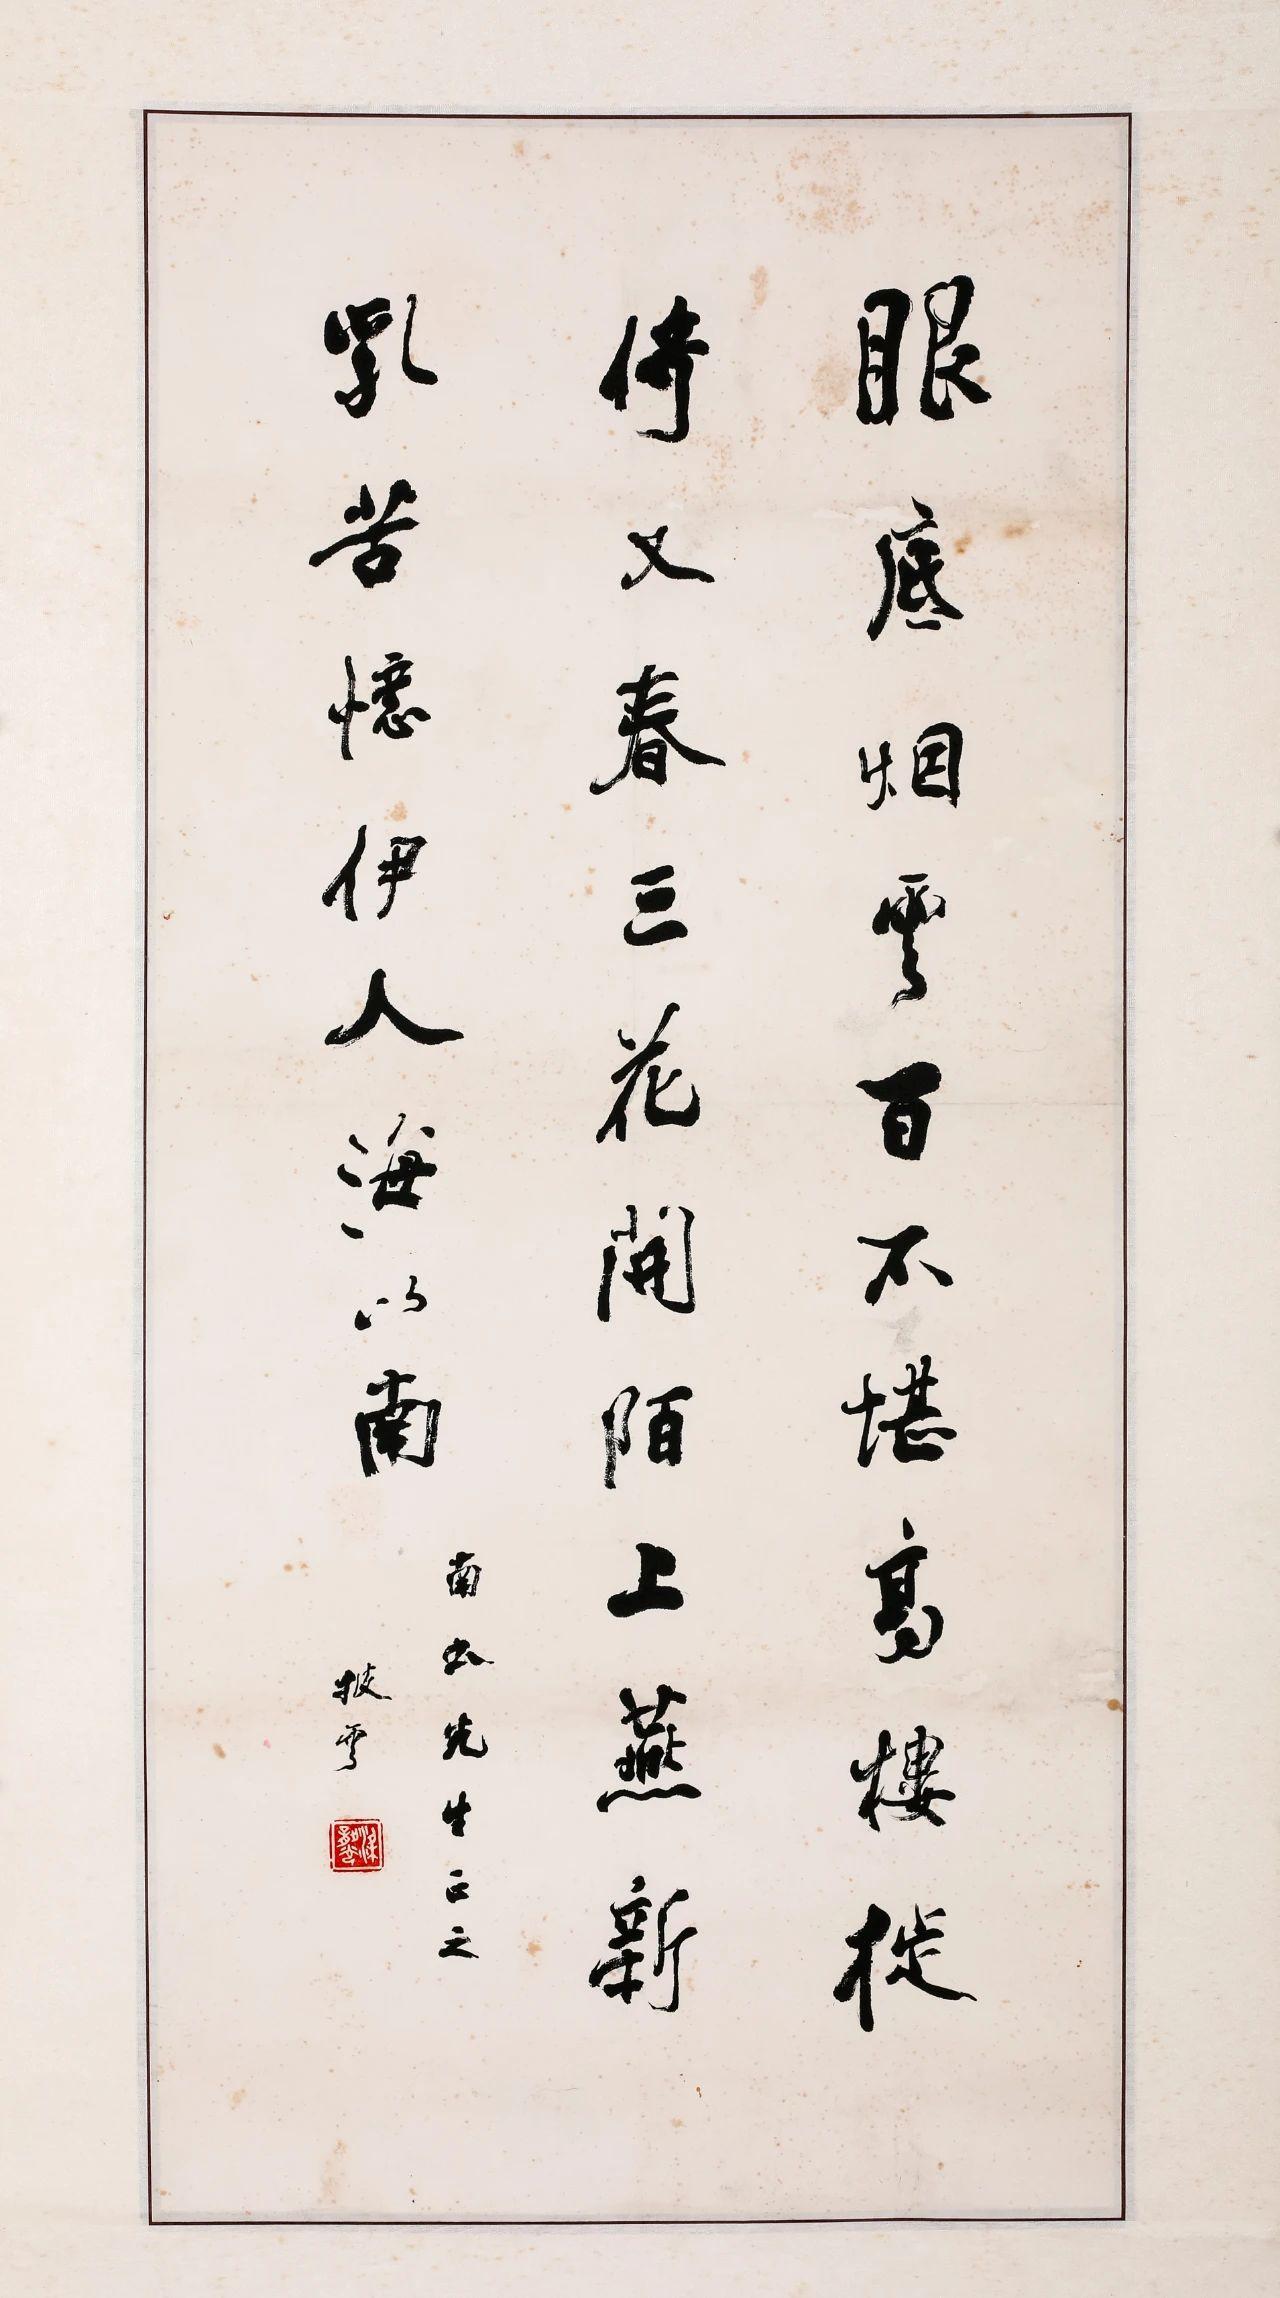 眼底烟雲百不堪高樓徙
倚又春三花開陌上燕新
乳苦憶伊人海以南
南 先生正之
披雲